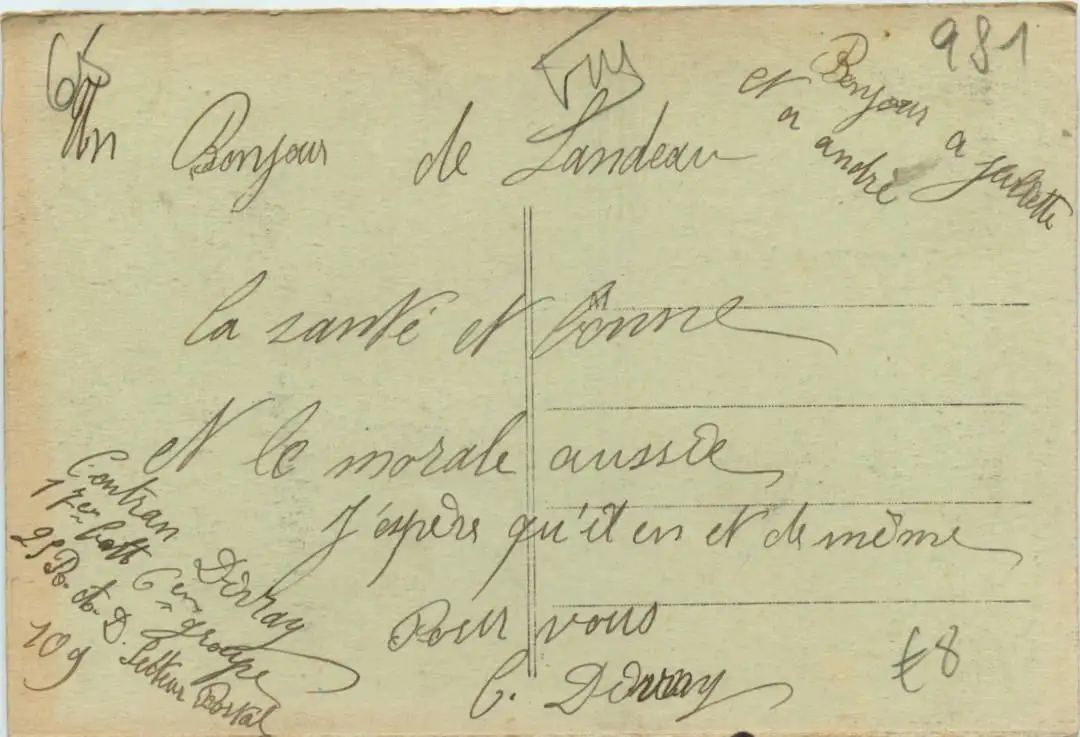 981
Un Bonjour de Landeau
Bonjour a Juliette
et a andré
la santé et bonne
et le morale aussie
J'espère qu'il en et de même
Pour vous
C. Dirray
Contran Dirray
17em batt 6em groupe
25 D. Secteur Postal
109
€8